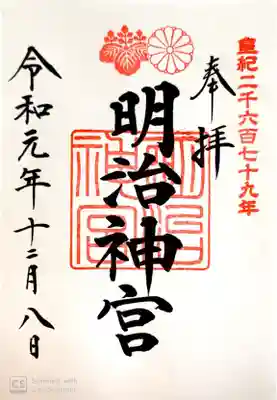 皇紀二千六百七十九年
奉拝
明治神宮
明治神宮
令和元年十二月八日
CS Scanned with
CamScanner